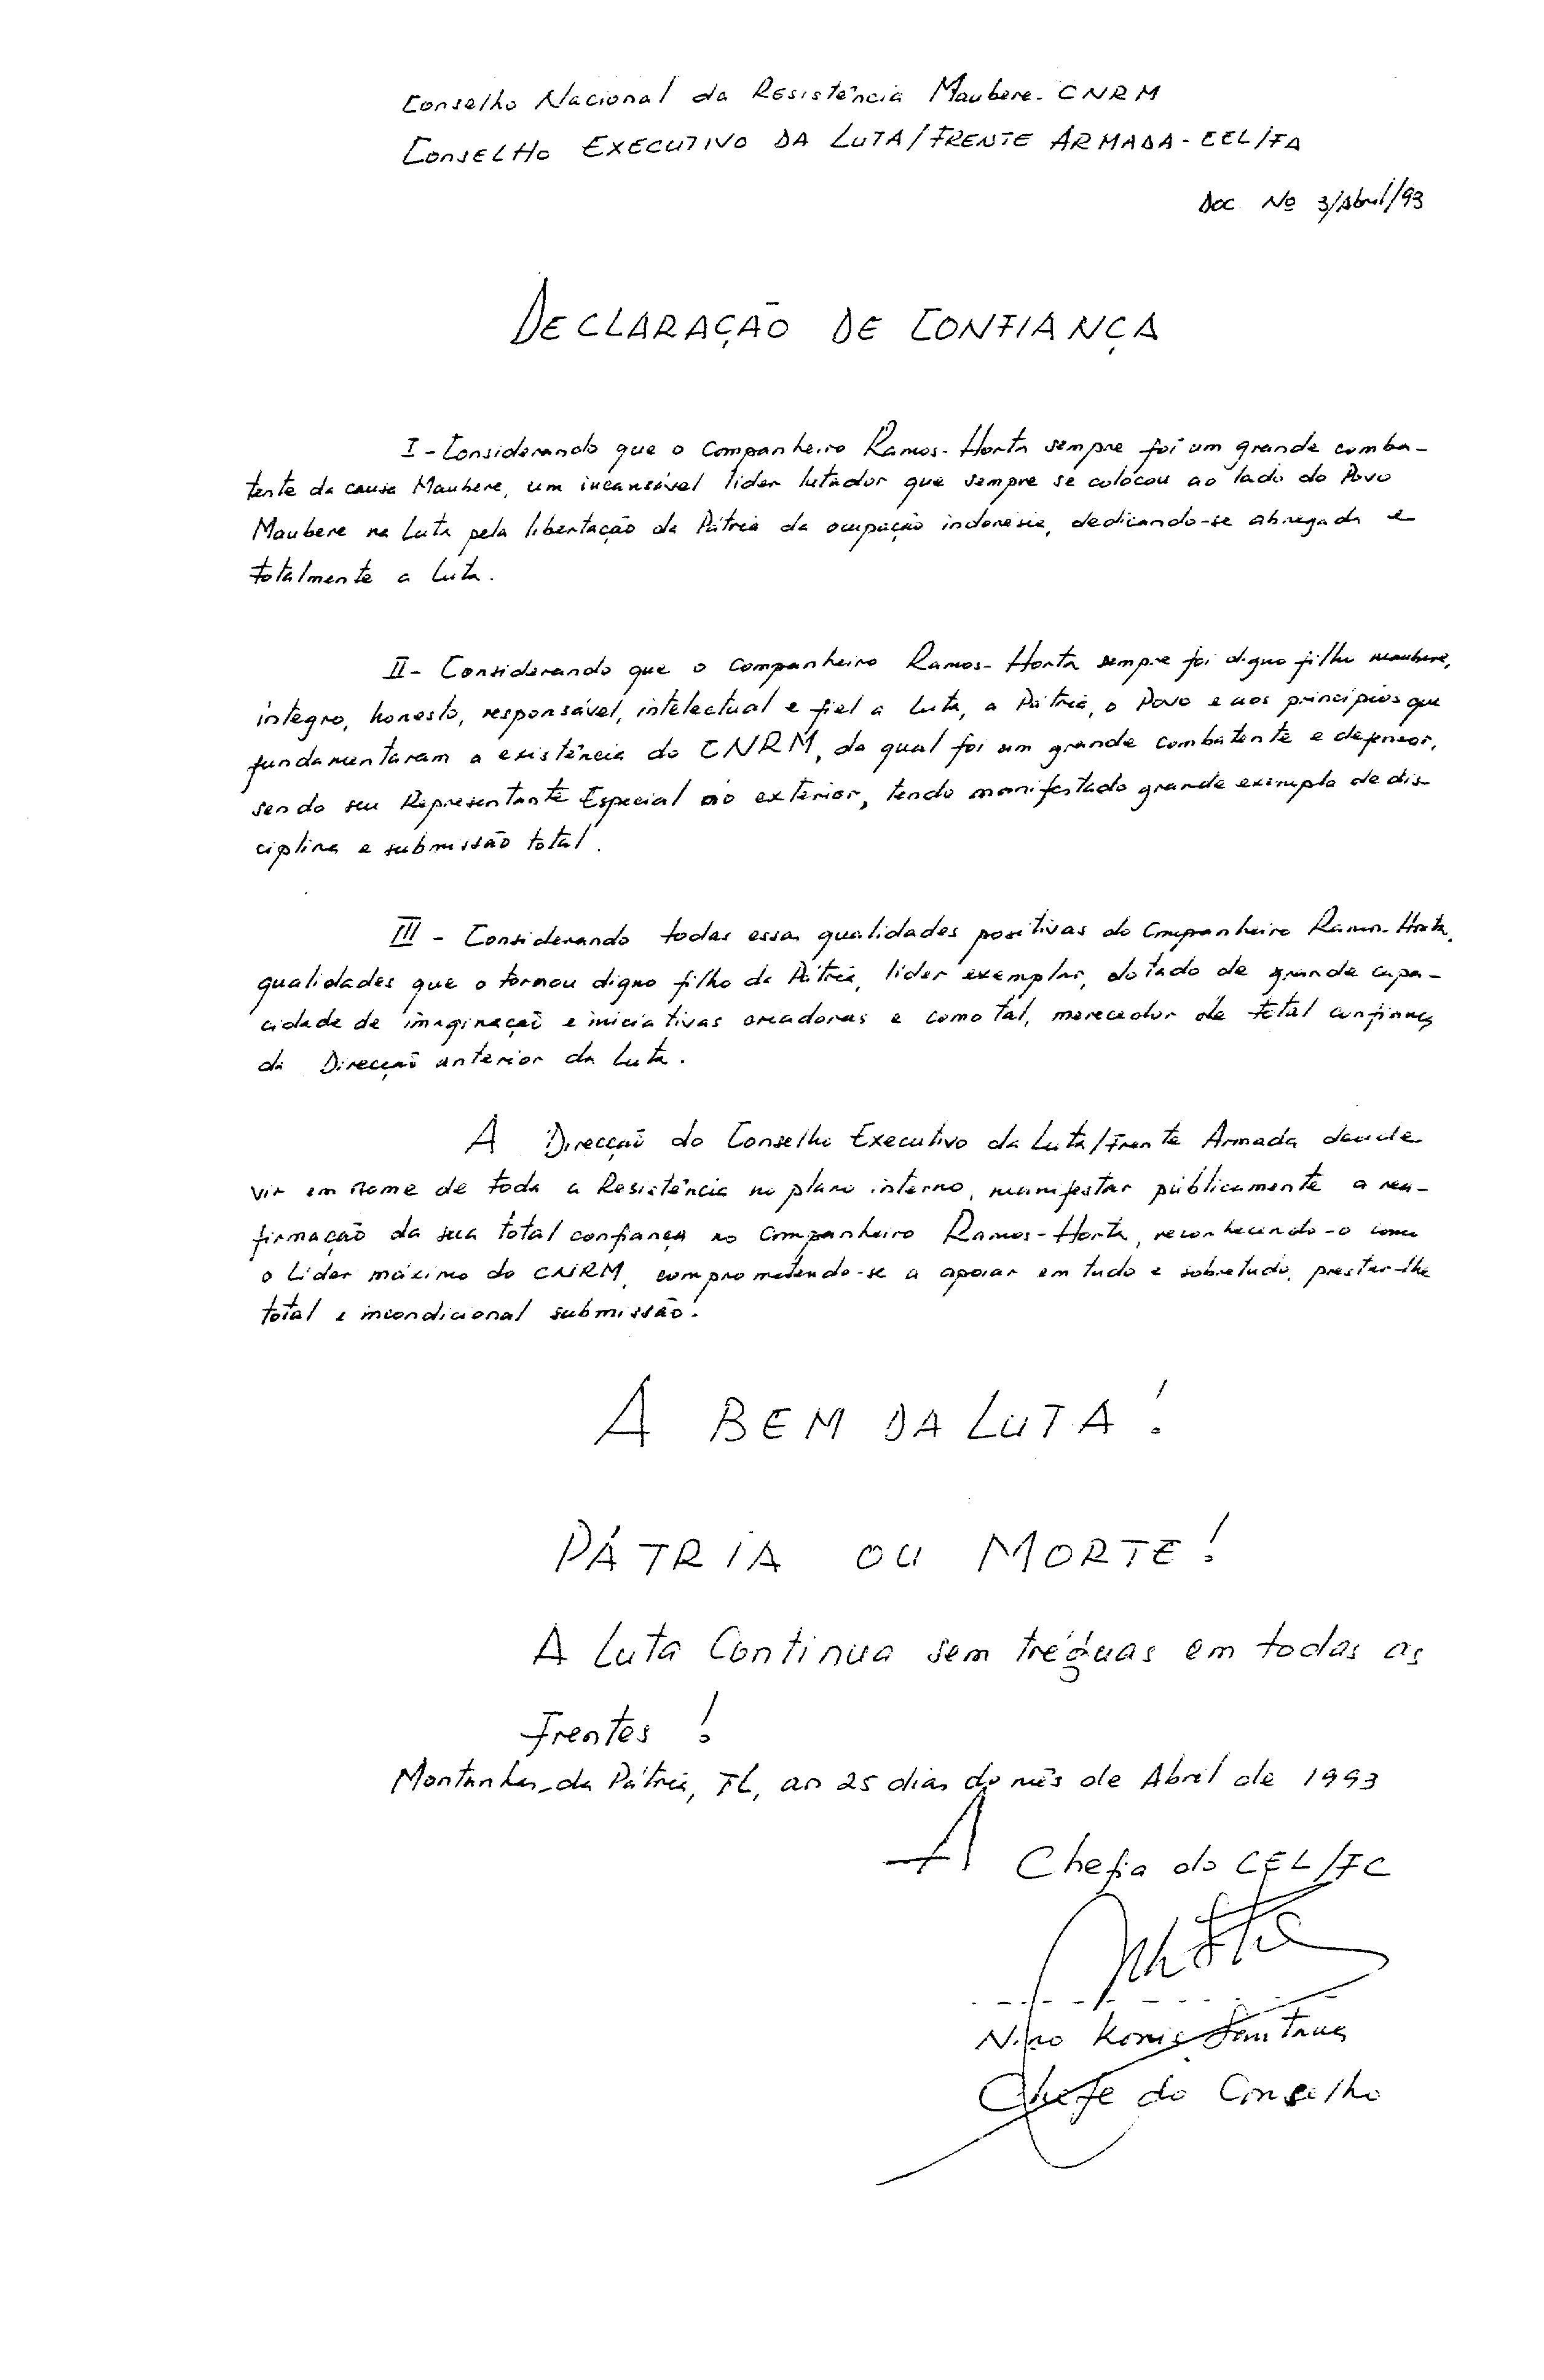 Conselho Nacional da Resistência Maubere - CNRM
CONSELHO EXECUTIVO DA LUTA/FRENTE ARMADA - CEL/FA
Doc Nº 3/Abril/93
DECLARAÇÃO DE CONFIANÇA
I - Considerando que o Companheiro Ramos-Horta sempre foi um grande comba-
tente da causa Maubere, um incansável líder lutador que sempre se colocou ao lado do Povo
Maubere na Luta pela libertação da Pátria da ocupação indonésia, dedicando-se abnegada e
totalmente a Luta.
II - Considerando que o Companheiro Ramos-Horta sempre foi digno filho maubere,
íntegro, honesto, responsável, intelectual e fiel a Luta, a Pátria, o Povo e aos princípios que
fundamentaram a existência do CNRM, da qual foi um grande combatente e defensor,
sendo seu Representante Especial no exterior, tendo manifestado grande exemplo de dis-
ciplina e submissão total.
III - Considerando todas essas qualidades positivas do Companheiro Ramos-Horta,
qualidades que o tornou digno filho da Pátria, líder exemplar, dotado de grande capa-
cidade de imaginação e iniciativas creadoras e como tal, merecedor de total confiança
da Direcção anterior da Luta.
A Direcção do Conselho Executivo da Luta/Frente Armada decide
vir em nome de toda a Resistência no plano interno, manifestar públicamente a rea-
firmação da sua total confiança no Companheiro Ramos-Horta, reconhecendo-o como
o Líder máximo do CNRM, comprometendo-se a apoiar em tudo e sobretudo, prestar-lhe
total e incondicional submissão.
A BEM DA LUTA!
PÁTRIA OU MORTE!
A Luta Continua sem tréguas em todas as
Frentes!
Montanhas da Pátria, TL, ao 25 dias do mês de Abril de 1993
A Chefia do CEL/FC
Nino Konis Santana
Chefe do Conselho